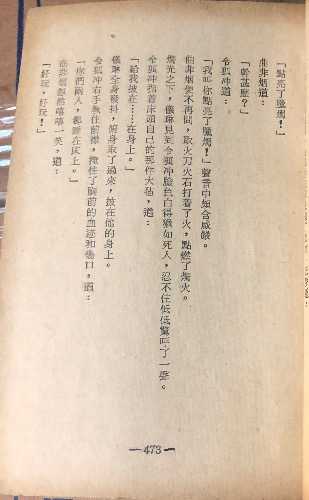 「點亮了臘燭！」
曲非烟道：
「幹甚麼？」
令狐冲道：
「我叫你點亮了臘燭！」聲音中頗含威嚴。
曲非烟便不再問，取火刀火石打着了火，點燃了燭火。
燭光之下，儀琳見到令狐冲臉色白得猶如死人，忍不住低低驚呼了一聲。
令狐冲指着床頭自己的那件大氅，道：
「給我披在……在身上。」
儀琳全身發抖，俯身取了過來，披在他的身上。
令狐冲右手拉住前襟，掩住了胸前的血迹和傷口，道：
「你們兩人，都睡在床上。」
曲非烟嘻嘻一笑，道：
「好玩，好玩！」
—473—